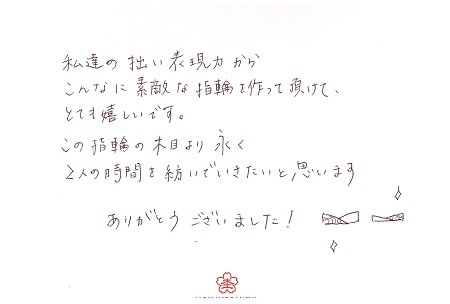 私達の拙い表現力から
こんなに素敵な指輪を作って頂けて、
とても嬉しいです。
この指輪の木目より永く
2人の時間を紡いでいきたいと思います
ありがとうございました!